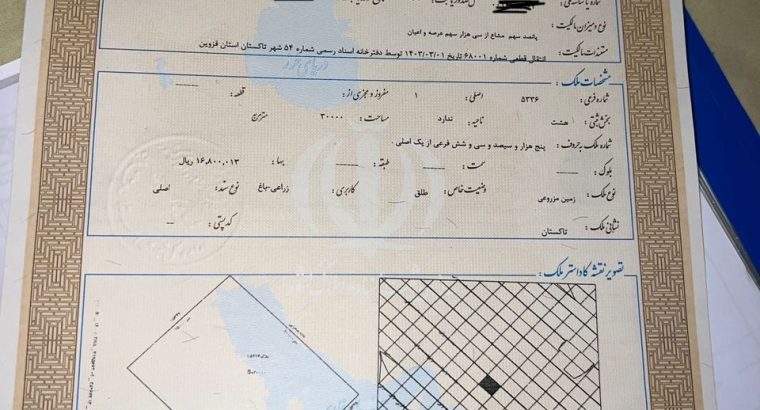 نوع و میزان مالکیت : پانصد سهم مشاع از سی هزار سهم عرصه و اعیان
مستندات مالکیت : انتقال قطعی شماره ۶۸۰۰۱ تاریخ ۱۴۰۳/۰۳/۰۱ توسط دفترخانه اسناد رسمی شماره ۵۴ شهر تاکستان استان قزوین
دریای خزر
مشخصات ملک :
شماره فرعی : ۵۳۳۶ اصلی : ۱ مفروز و مجزی از : قطعه :
بخش ثبتی : هشت ناحیه : ندارد مساحت : ۳۰۰۰۰ مترمربع
شماره ملک به حروف : پنج هزار و سیصد و سی و شش فرعی از یک اصلی
بلوک : سمت : طبقه : بها : ۱۶,۸۰۰,۰۱۳ ریال
نوع ملک : زمین مزروعی وضعیت خاص : طلق کاربری : زراعی-باغ نوع سند : اصلی
نشانی ملک : تاکستان کدپستی :
تصویر نقشه کاداستر ملک :